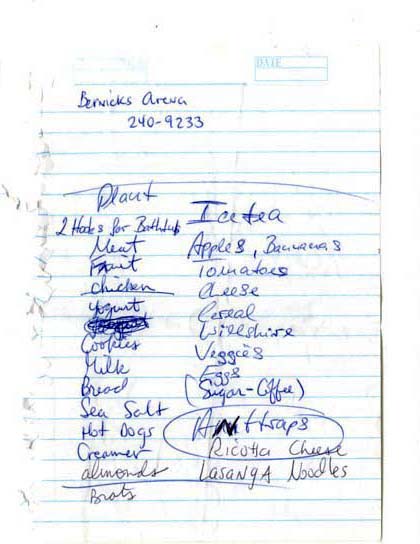 DATE
Berwicks Arena
240-9233
Plant
2 Hooks for Bathtub
Meat
Fruit
chicken
yogurt
Cookies
Milk
Bread
Sea Salt
Hot Dogs
Creamer
almonds
Brats
Icetea
Apples, Bannanas
Tomatoes
cheese
Cereal
Willshire
Veggies
Eggs
(Sugar-Coffee)
ANttraps
Ricotta Cheese
LasangA Noodles